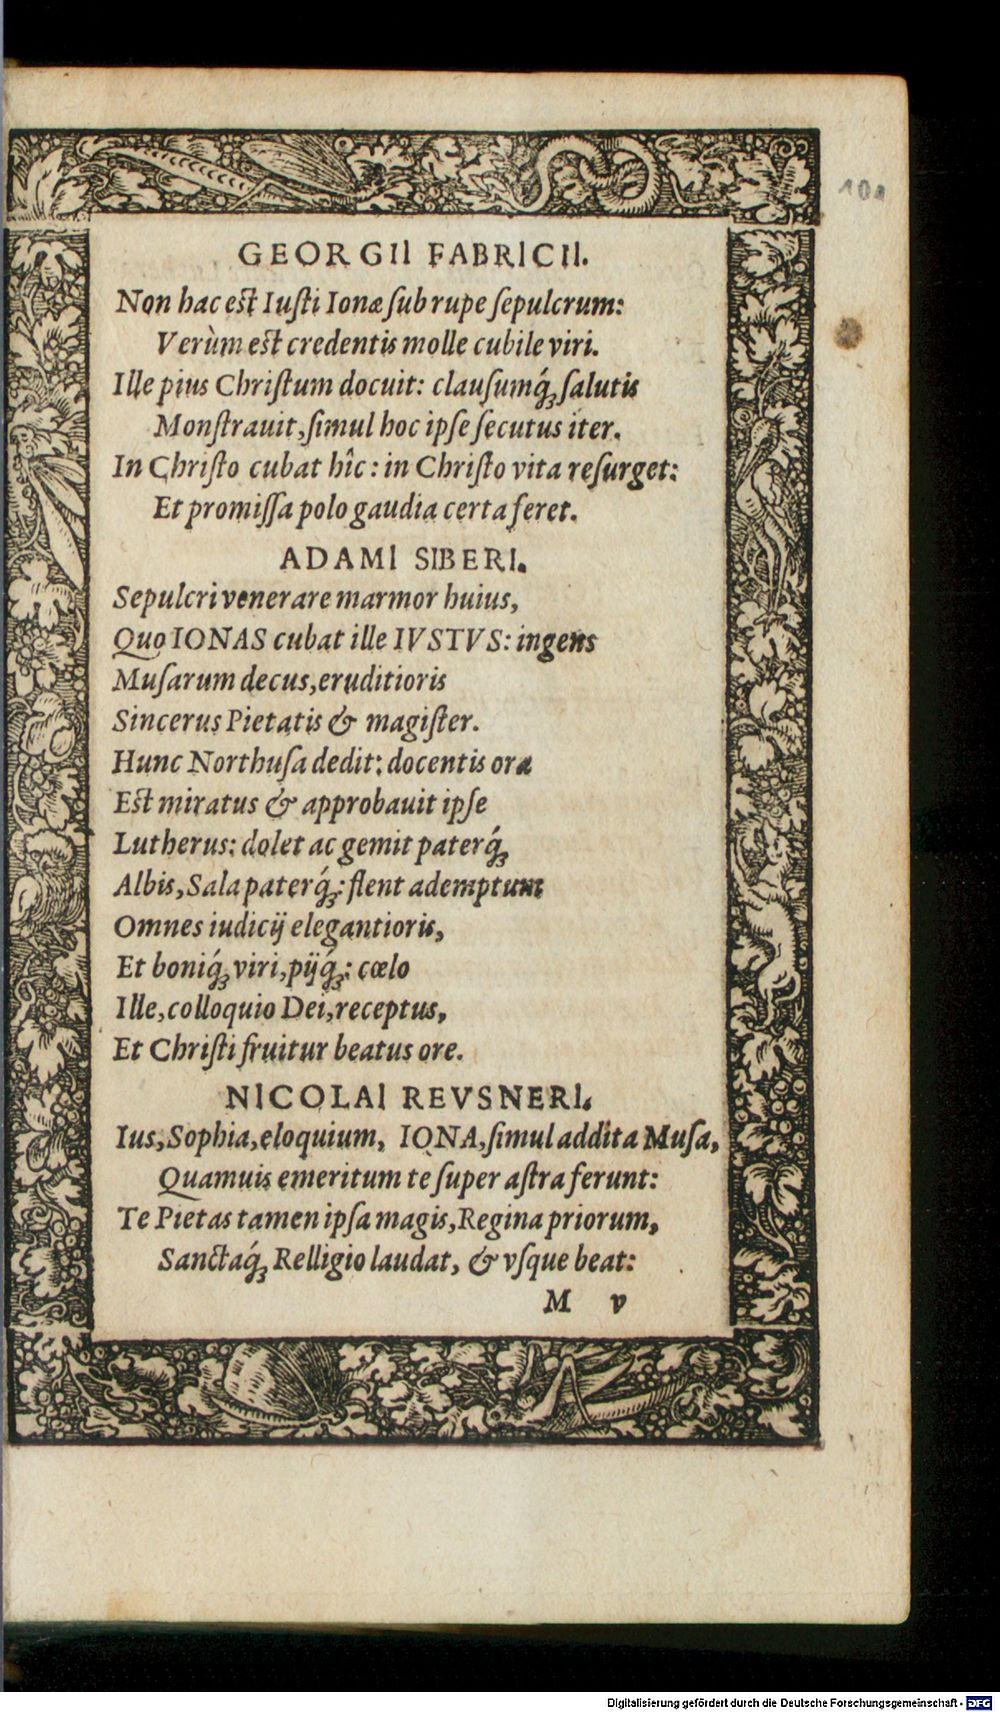 101
GEORGII FABRICII.
Non hac est Iusti Ionæ sub rupe sepulcrum:
Verùm est credentis molle cubile viri.
Ille pius Christum docuit: clausumq́ꝫ salutis
Monstrauit, simul hoc ipse secutus iter.
In Christo cubat hîc: in Christo vita resurget:
Et promissa polo gaudia certa feret.
ADAMI SIBERI.
Sepulcri venerare marmor huius,
Quo IONAS cubat ille IVSTVS: ingens
Musarum decus, eruditioris
Sincerus Pietatis & magister.
Hunc Northusa dedit: docentis ora
Est miratus & approbauit ipse
Lutherus: dolet ac gemit paterq́ꝫ
Albis, Sala paterq́ꝫ: flent ademptum
Omnes iudicij elegantioris,
Et boniq́ꝫ viri, pijq́ꝫ: cœlo
Ille, colloquio Dei, receptus,
Et Christi fruitur beatus ore.
NICOLAI REVSNERI.
Ius, Sophia, eloquium, IONA, simul addita Musa,
Quamuis emeritum te super astra ferunt:
Te Pietas tamen ipsa magis, Regina priorum,
Sanctaq́ꝫ Relligio laudat, & vsque beat:
M v
Digitalisierung gefördert durch die Deutsche Forschungsgemeinschaft - DFG